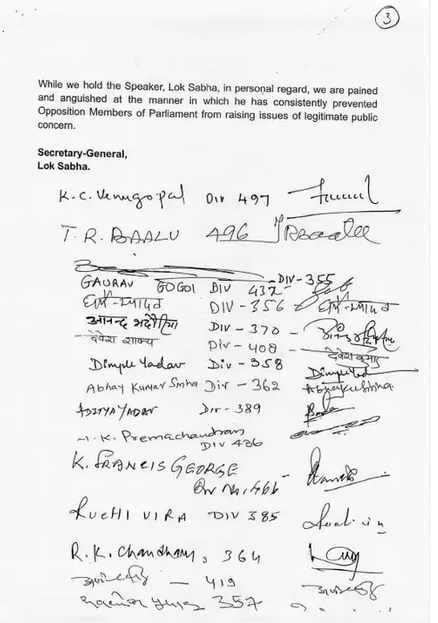 3
While we hold the Speaker, Lok Sabha, in personal regard, we are pained
and anguished at the manner in which he has consistently prevented
Opposition Members of Parliament from raising issues of legitimate public
concern.
Secretary-General,
Lok Sabha.
K.C. Venugopal DIV 497
T.R. BAALU 496 TRBaalu
DIV-355
GAURAV GOGOI DIV 432-
धर्मेन्द्र यादव DIV-356 धर्मेन्द्र यादव
आनन्द भदौरिया DIV-370 -
देवेश शाक्य DIV-408 -
Dimple Yadav Div-358 Dimple Yadav
Abhay Kumar Sinha Div-362 Abhaykrsinha.
ADITYA YADAV Div-389
N.K. Premachandran
DIV 486
K. FRANCIS GEORGE
Div No. 466
RUCHI VIRA DIV 385 Ruchi vira
R.K. Chaudhary, 364
- 419
357